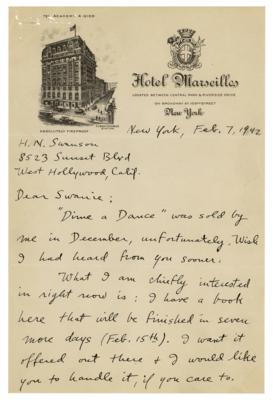 Hotel Marseilles
LOCATED BETWEEN CENTRAL PARK & RIVERSIDE DRIVE
ON BROADWAY AT 103RD STREET
New York
ABSOLUTELY FIREPROOF
New York, Feb. 7, 1942
H. N. Swanson
8523 Sunset Blvd
West Hollywood, Calif.
Dear Swanie:
"Dime a Dance" was sold by
me in December, unfortunately. Wish
I had heard from you sooner.
What I am chiefly interested
in right now is: I have a book
here that will be finished in seven
more days (Feb. 15th). I want it
offered out there & I would like
you to handle it, if you care to.